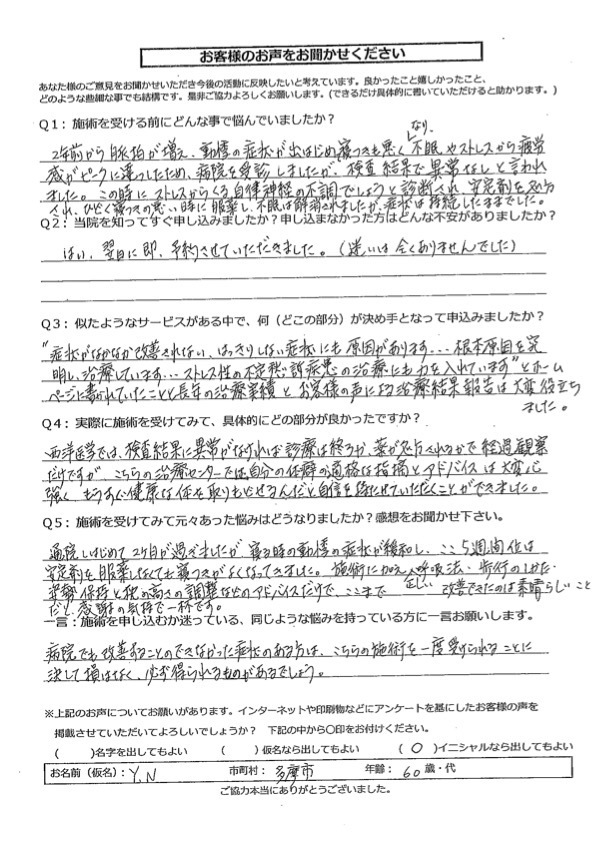 お客様のお声をお聞かせください
あなた様のご意見をお聞かせいただき今後の活動に反映したいと考えています。良かったこと嬉しかったこと、
どのような些細な事でも結構です。是非ご協力よろしくお願いします。(できるだけ具体的に書いていただけると助かります。)
Q1：施術を受ける前にどんな事で悩んでいましたか？
2年前から脈拍が増え、動悸の症状が出はじめ寝つきも悪くなり、不眠やストレスから疲労
感がピークに達っしたため、病院を受診しましたが、検査結果で異常なしと言われ
ました。この時にストレスからくる自律神経の不調でしょうと診断され、安定剤を処方
され、ひどく寝つきの悪い時に服薬し、不眠は解消されましたが、症状は持続したままでした。
Q2：当院を知ってすぐ申し込みましたか？申し込まなかった方はどんな不安がありましたか？
はい、翌日に即、予約させていただきました。(迷いは全くありませんでした)
Q3：似たようなサービスがある中で、何（どこの部分）が決め手となって申込みましたか？
"症状がなかなか改善されない、はっきりしない症状にも原因があります・・・根本原因を究
明し、治療しています・・・ストレス性の不定愁訴疾患の治療にも力を入れています"とホーム
ページに書かれていたことと長年の治療実績とお客様の声による治療結果報告は大変役立ち
ました。
Q4：実際に施術を受けてみて、具体的にどの部分が良かったですか？
西洋医学では、検査結果に異常がなければ診療は終るか、薬が処方されるかで経過観察
だけですが、こちらの治療センターでは自分の体癖の適格な指摘とアドバイスは大変心
強く、もうすぐ健康な体を取りもどせるんだと自信を持たせていただくことができました。
Q5：施術を受けてみて元々あった悩みはどうなりましたか？感想をお聞かせ下さい。
通院しはじめて2ケ月が過ぎましたが、寝る時の動悸の症状が緩和し、ここ5週間位は
安定剤を服薬しなくても寝つきがよくなってきました。施術に加え、呼吸法・歩行のしかた・
正しい姿勢保持と枕の高さの調整などのアドバイスだけで、ここまで改善できたのは素晴らしいこと
だと、感謝の気持で一杯です。
一言：施術を申し込むか迷っている、同じような悩みを持っている方に一言お願いします。
病院でも改善することのできなかった症状のある方は、こちらの施術を一度受けられることに
決して損はなく、必ず得られるものがあるでしょう。
※上記のお声についてお願いがあります。インターネットや印刷物などにアンケートを基にしたお客様の声を
掲載させていただいてよろしいでしょうか？ 下記の中から○印をお付けください。
( )名字を出してもよい ( )仮名なら出してもよい ( ○ )イニシャルなら出してもよい
お名前（仮名）：Y.N 市町村：多摩市 年齢：60歳・代
ご協力本当にありがとうございました。